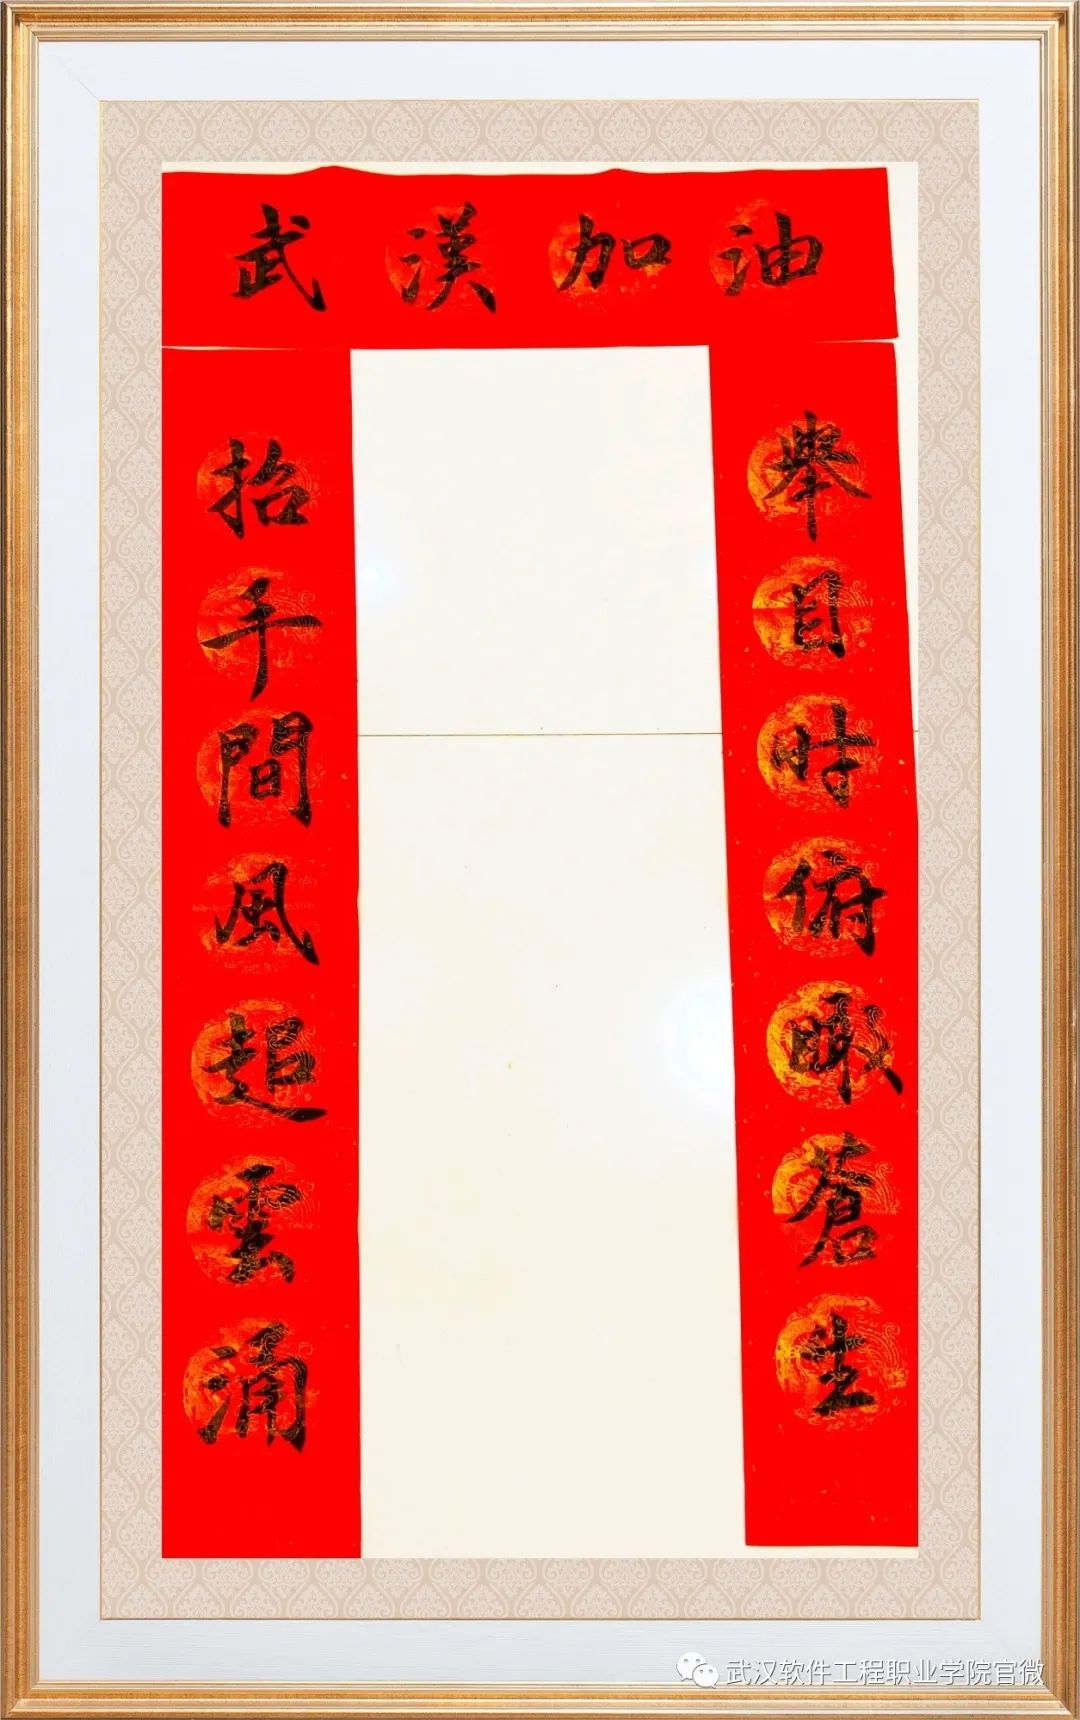 武漢加油
舉目時俯瞰蒼生
抬手間風起雲涌
武汉软件工程职业学院官微